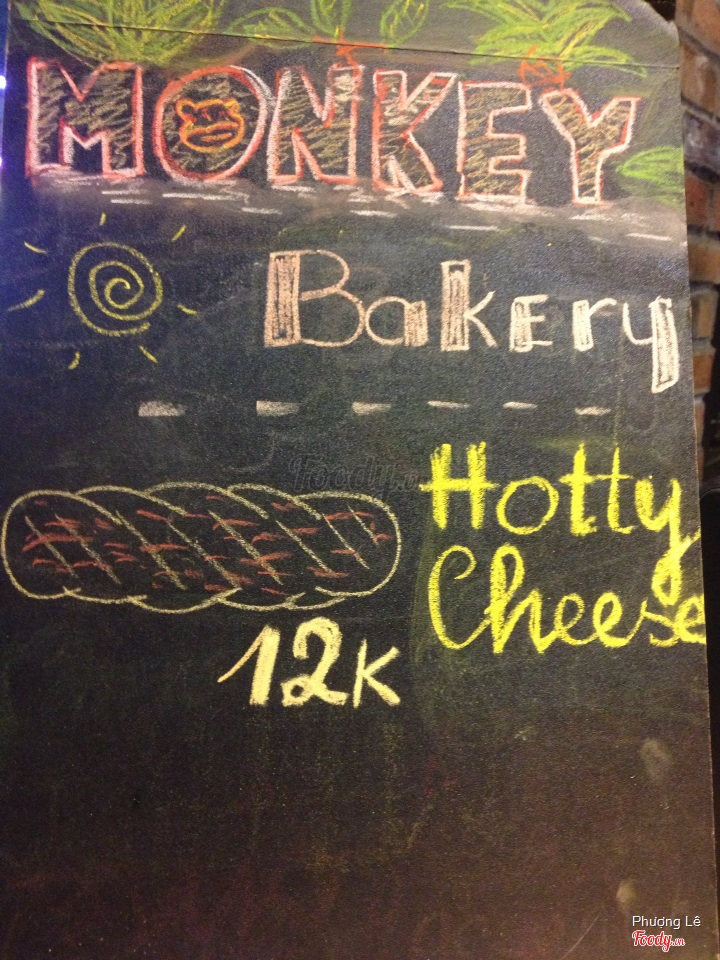 MONKEY
Bakery
Foody.vn
Hotty
Cheese
12K
Phượng Lê
Foody.vn